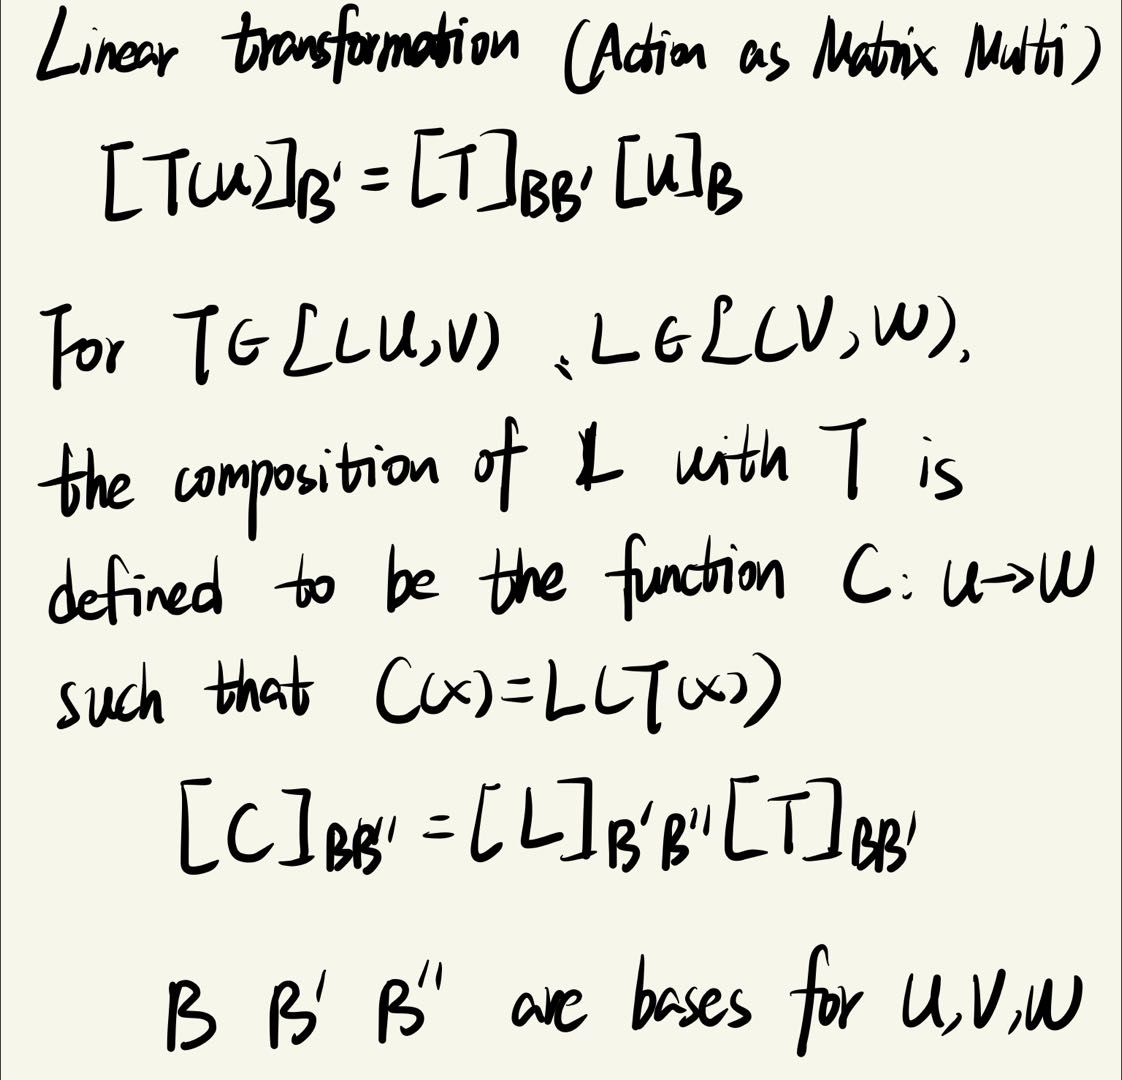 Linear transformation (Action as Matrix Multi)
[T(u)]B' = [T]BB' [u]B
For T∈L(U,V) 、L∈L(V,W),
the composition of L with T is
defined to be the function C: U→W
such that C(x)=L(T(x))
[C]BB'' = [L]B'B'' [T]BB'
B B' B'' are bases for U,V,W